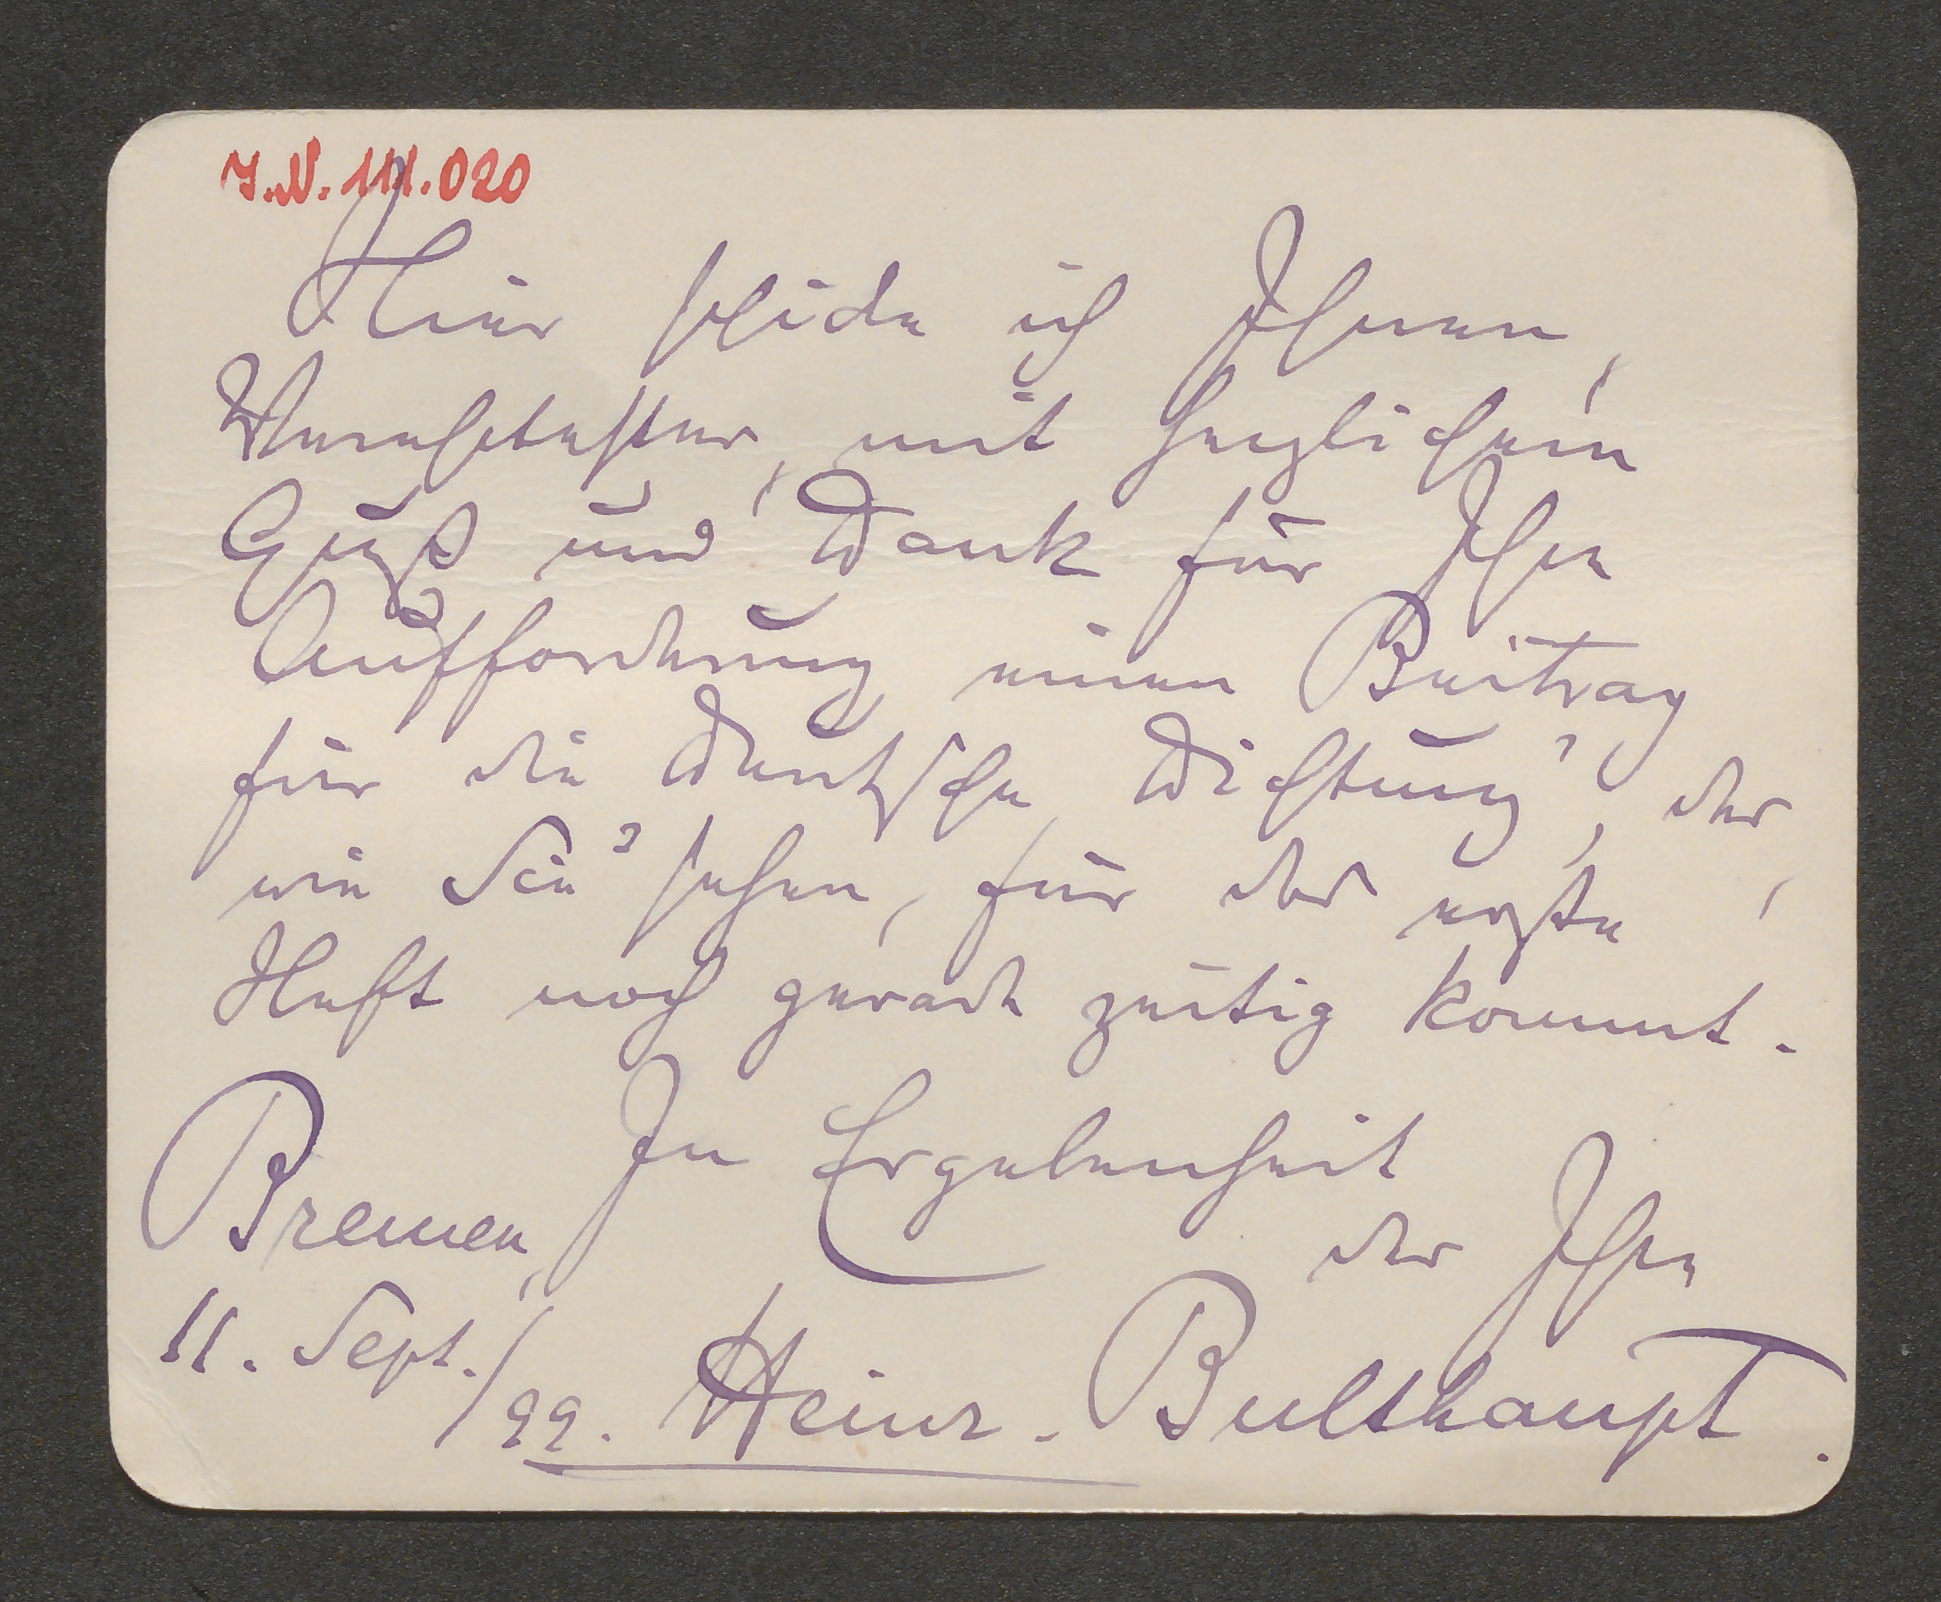 J.N. 111.020
Hier schicke ich Ihnen,
Verehrtester, mit herzlichem
Gruß und Dank für Ihre
Aufforderung einen Beitrag
für die „Deutsche Dichtung", der,
wie Sie sehen, für das erste
Heft noch gerade zeitig kommt.
In Ergebenheit
der Ihre
Bremen,
11. Sept./99. Heinr. Bulthaupt.